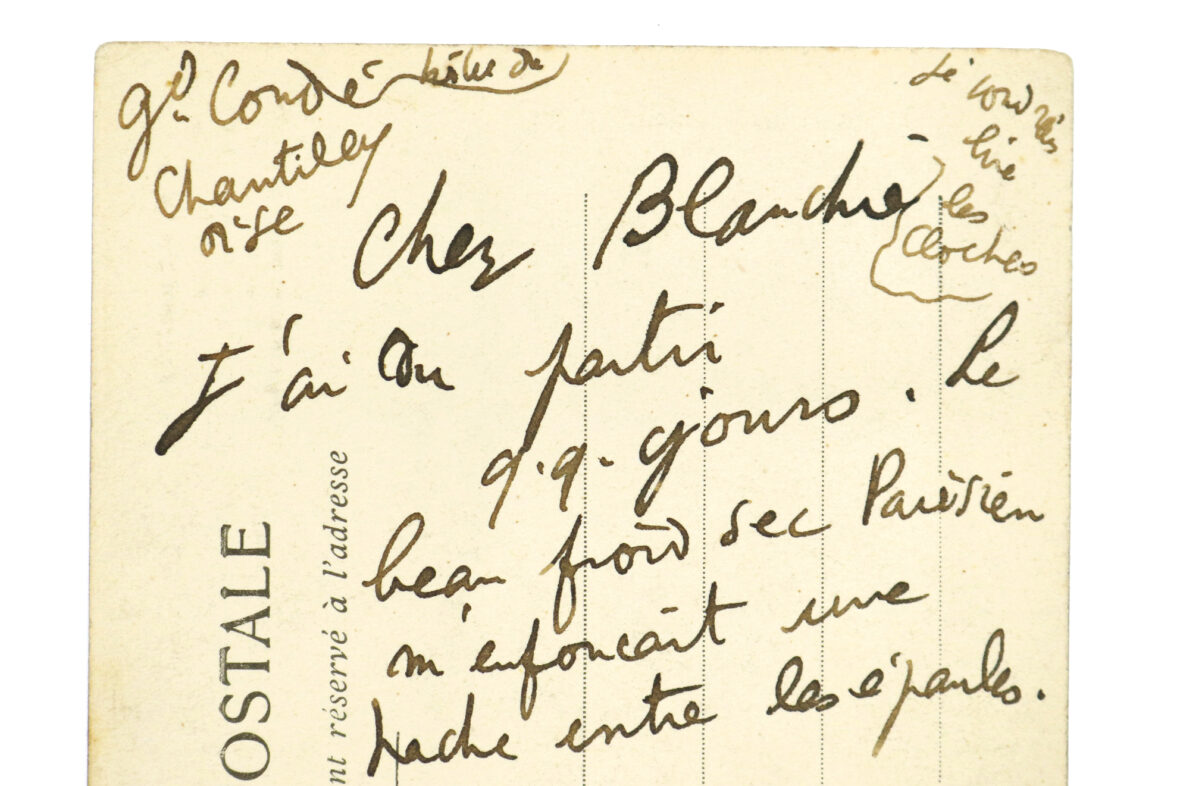 hôtel du
gd. Condé
Chantilly
oise
Je voudrais
lire
les
cloches
Cher Blanche
J'ai du partir
q.q. jours. Le
beau froid sec Parisien
m'enfoncait une
hache entre les épaules.
OSTALE
nt réservé à l'adresse